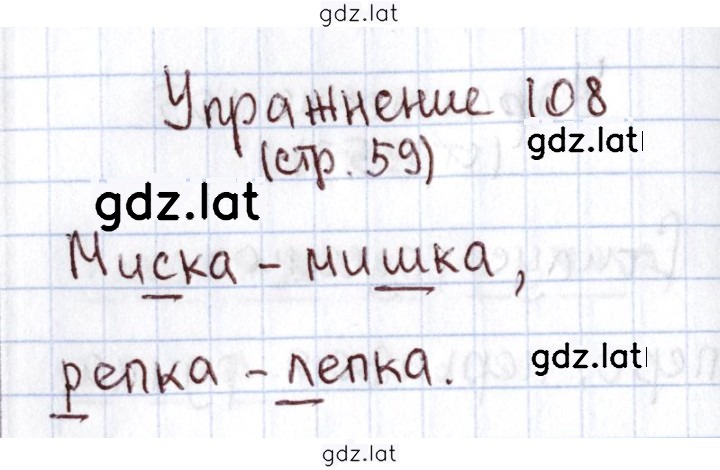 gdz.lat
Упражнение 108
gdz.lat
(стр. 59)
gdz.lat
Миска - мишка,
репка - лепка.
gdz.lat
gdz.lat